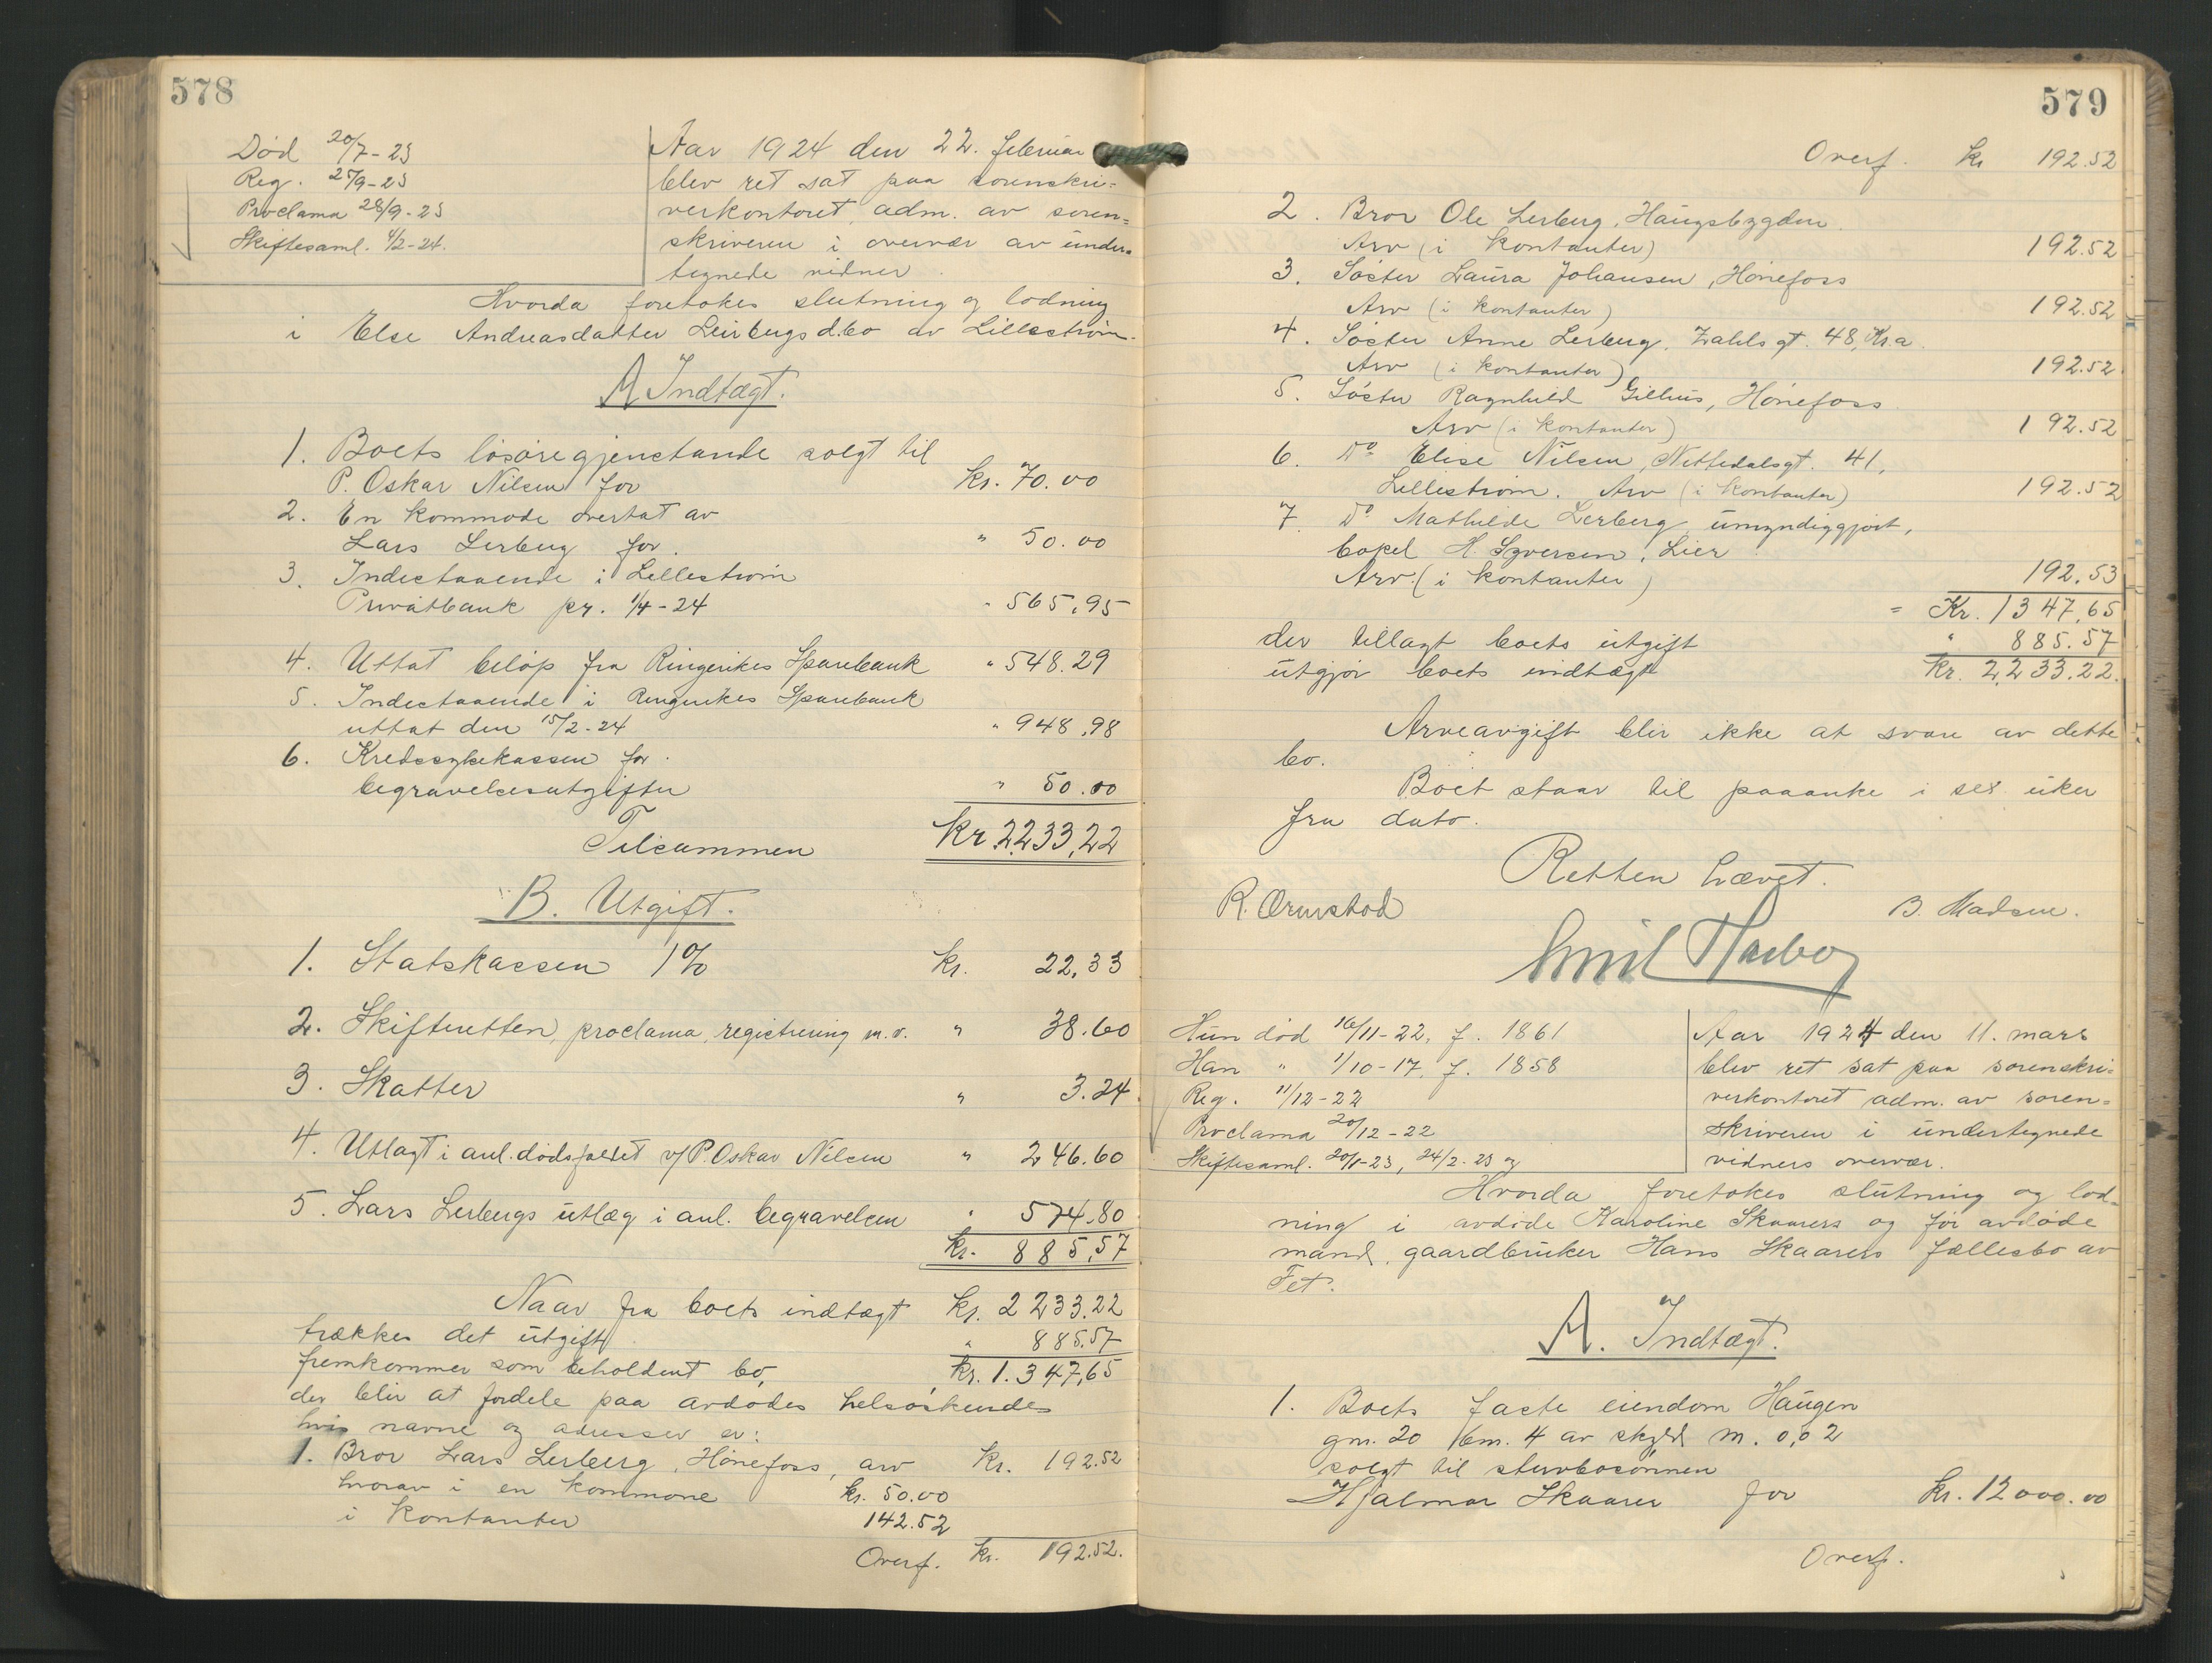 578
Død 20/7-23
Reg. 25/9-23
Proclama 28/9-23
Skiftesaml. 4/2-24.
Aar 1924 den 22. februar
blev ret sat paa sorenskri=
verkontoret, adm. av soren=
skriveren i overvær av under=
tegnede vidner.
Hvorda foretokes slutning og lodning
i Else Andreasdatter Leirbergs d.bo av Lillestrøm.
A Indtægt.
1. Boets løsøregjenstande solgt til
P. Oskar Nilsen for kr. 70.00
2. En kommode overtat av
Lars Lerberg for. " 50.00
3. Indestaaende i Lillestrøm
Privatbank pr. 1/4-24 " 565,95
4. Uttat beløp fra Ringerikes Sparebank " 548.29
5. Indestaaende i Ringerikes Sparebank
uttat den 15/2-24 " 948,98
6. Kredssykekassen for
begravelsesutgifter " 50.00
Tilsammen Kr 2233,22
B. Utgift.
1. Statskassen 1% kr. 22,33
2. Skifteretten, proclama, registrering m.v. " 38.60
3. Skatter " 3.24
4. Utlagt i anl. dødsfaldet v/ P. Oskar Nilsen " 246.60
5. Lars Lerbergs utlæg i anl. begravelsen " 574.80
kr. 885,57
Naar fra boets indtægt kr. 2233.22
trækkes det utgift " 885.57
fremkommer som beholdent bo, kr. 1.347,65
der blir at fordele paa avdødes helsøskende
hvis navne og adresser er:
1. Bror Lars Lerberg, Hønefoss, arv kr. 192.52
hvorav i en kommode kr. 50.00
i kontanter 142.52
Overf. kr. 192.52.
579
Overf. kr 192.52
2. Bror Ole Lerberg, Haugsbygden.
Arv (i kontanter) 192.52
3. Søster Laura Johansen, Hønefoss
Arv (i kontanter) 192.52
4. Søster Anne Lerberg. Zahlsgt. 48, Kr.a.
Arv (i kontanter) 192.52
5. Søster Ragnhild Gilhus, Hønefoss
Arv (i kontanter) 192.52
6. Do Elise Nilsen, Nittedalsgt. 41,
Lillestrøm. Arv (i kontanter) 192.52
7. Do Mathilde Lerberg, umyndiggjort,
bopel H. Syversen, Lier
Arv: (i kontanter) 192,53
= Kr. 1347,65
der tillagt boets utgift " 885.57
utgjør boets indtægt kr. 2,233.22.
Arveavgift blir ikke at svare av dette
bo.
Boet staar til paaanke i sex uker
fra dato.
Retten hævet.
R. Ørmstad
B. Madsen.
Emil
Hun død 16/11-22, f. 1861
Han " 1/10-17, f. 1858
Reg. 11/12-22
Proclama 20/12-22
Skiftesaml. 20/1-23, 24/2-23 og
Aar 1924 den 11. mars
blev ret sat paa sorenskri=
verkontoret adm. av soren=
skriveren i undertegnede
vidners overvær.
Hvorda foretokes slutning og lod=
ning i avdøde Karoline Skaarers og før avdøde
mand, gaardbruker Hans Skaarers fællesbo av
Fet.
A. Indtægt.
1. Boets faste eiendom Haugen
gm. 20 bm. 4 av skyld m. 0,02
solgt til stervbosønnen
Hjalmar Skaarer for kr. 12000.00
Overf.